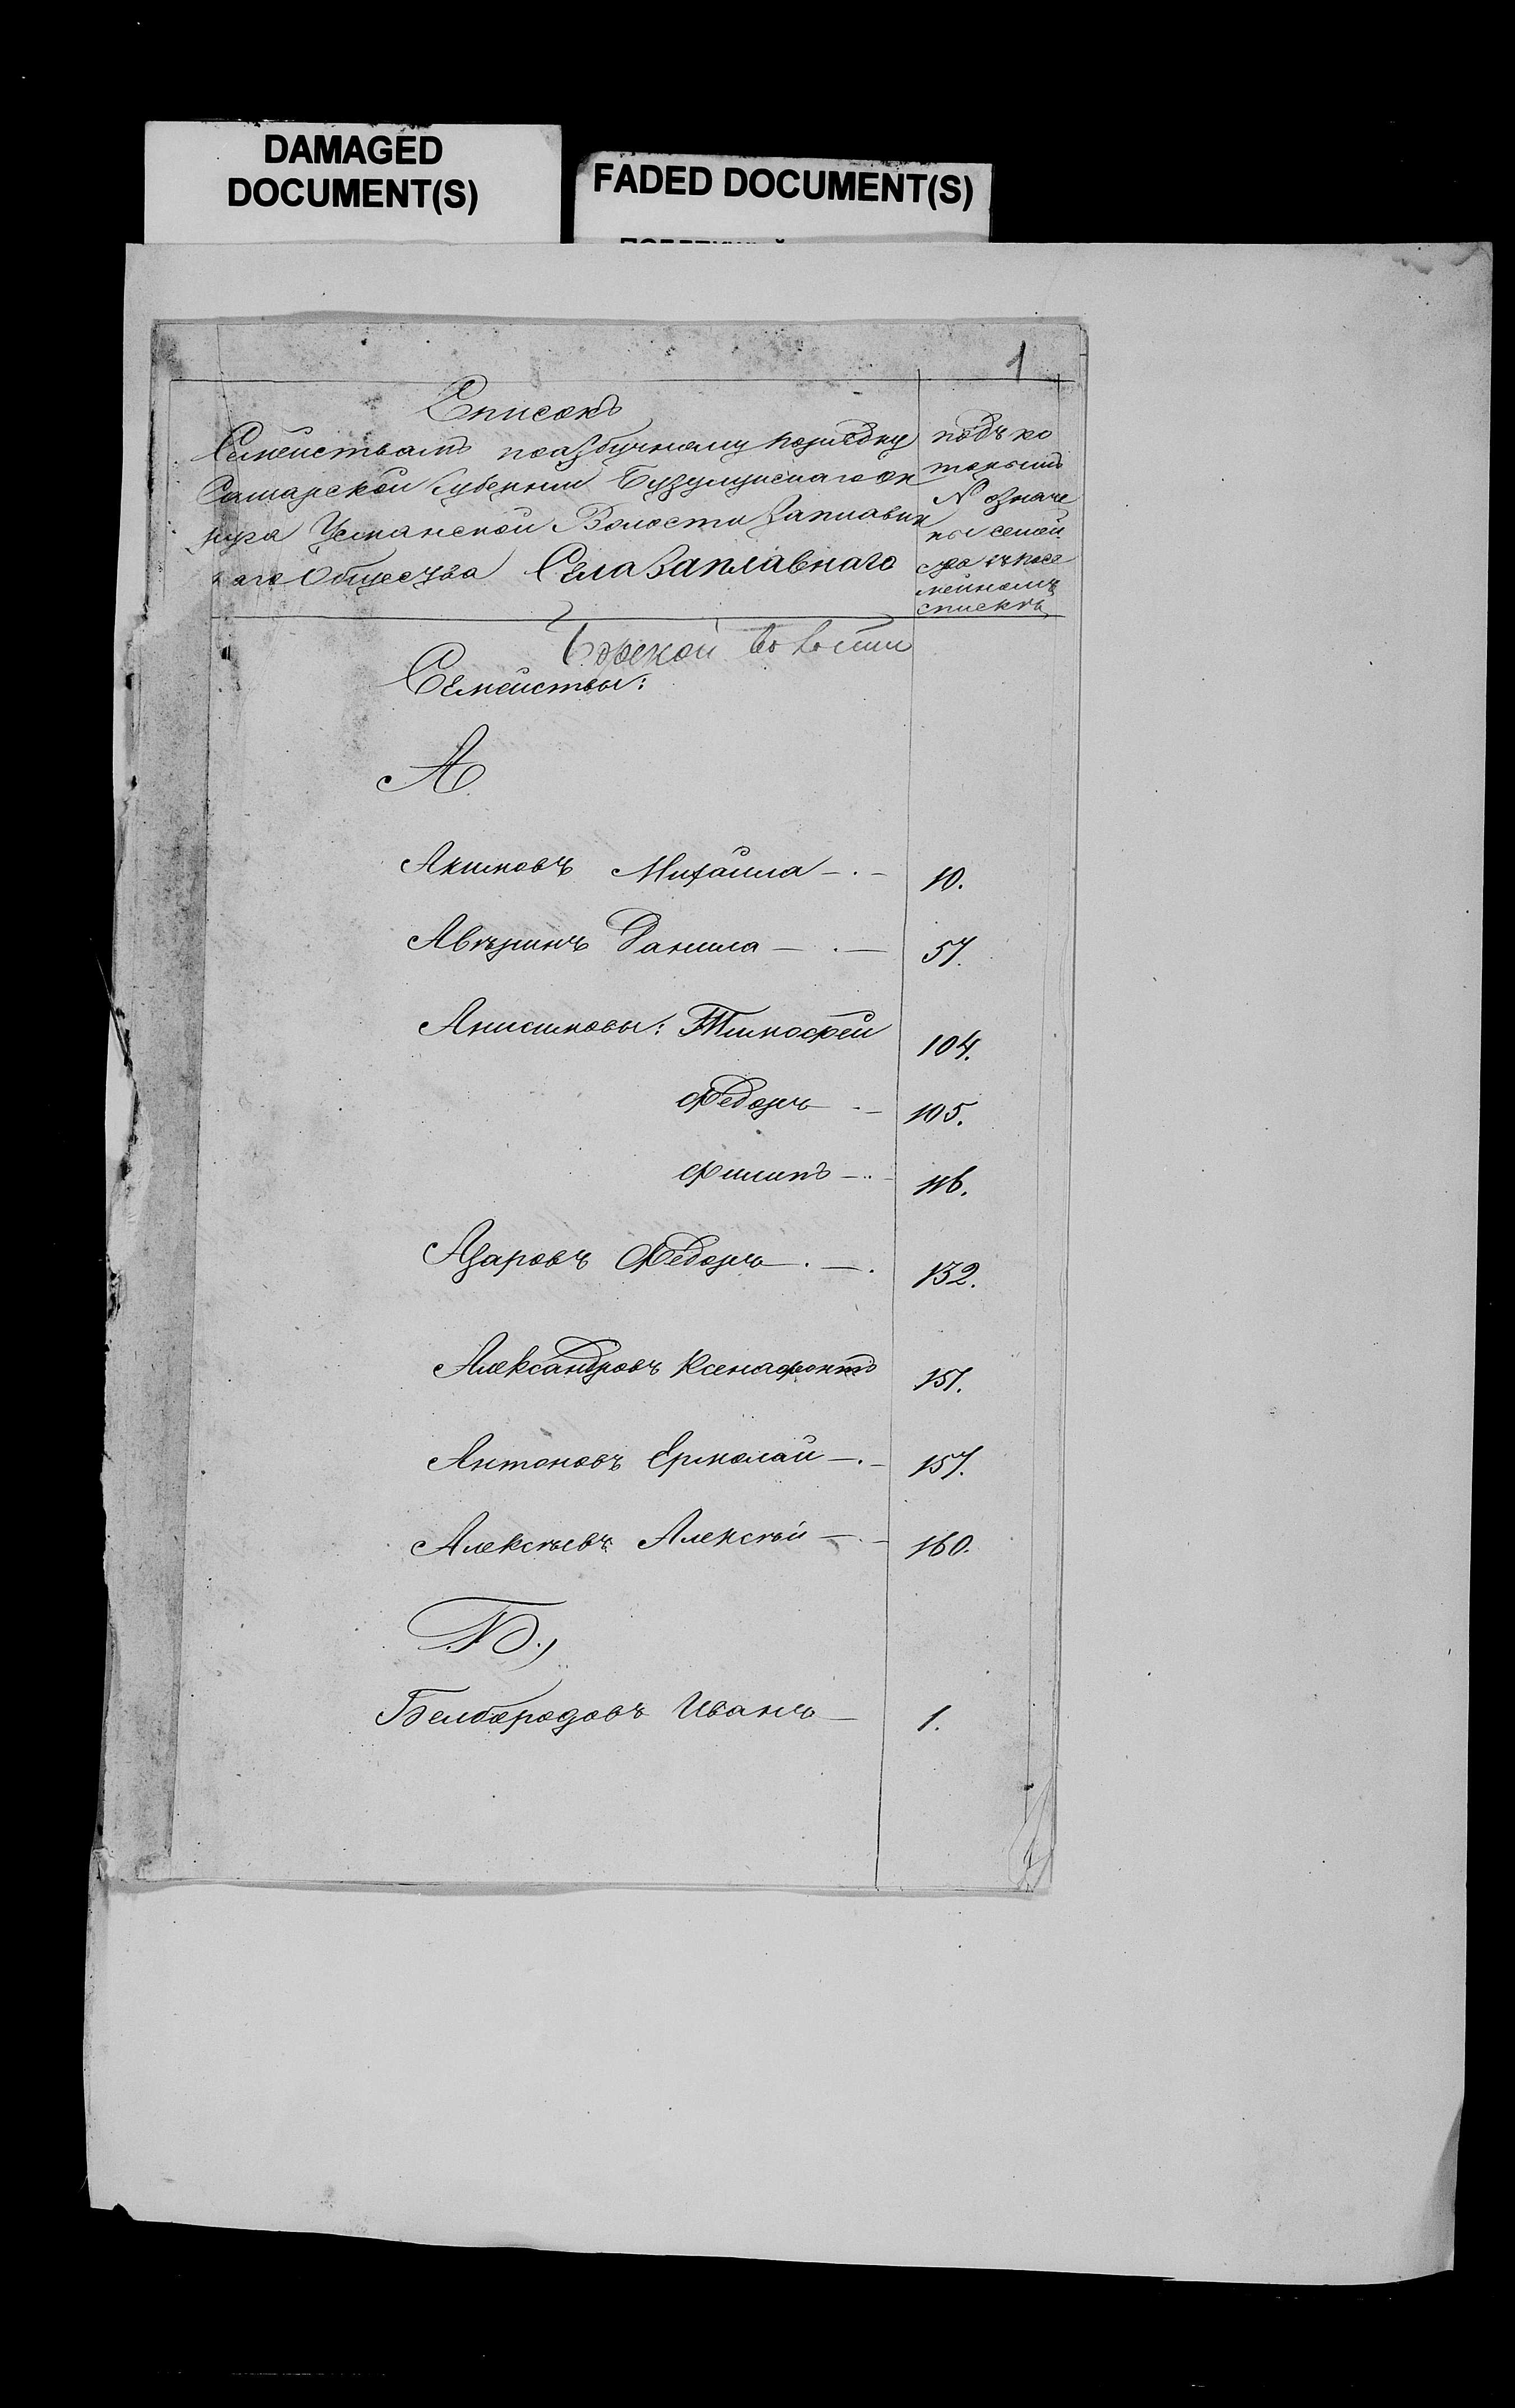 DAMAGED
DOCUMENT(S)
FADED DOCUMENT(S)
1
Списокъ
Семействамъ поазбучному порядку
Самарской Губернии Бузулукскаго ок
руга Усманской Волости Заплавин
каго Общества Села Заплавнаго
подъ ко
торымъ
№ означе
ны семей
ства въ посе
мейномъ
спискѣ
Борской волости
Семействы:
А
Акимовъ Михаила 10.
Авѣринъ Данила 57.
Анисимовы: Тимофей 104.
Федоръ 105.
Филипъ 116.
Азаровъ Федоръ 132.
Александровъ Ксенафонтъ 151.
Антоновъ Ермолай 157.
Алексѣевъ Алексѣй 160.
Б.
Белбородовъ Иванъ 1.